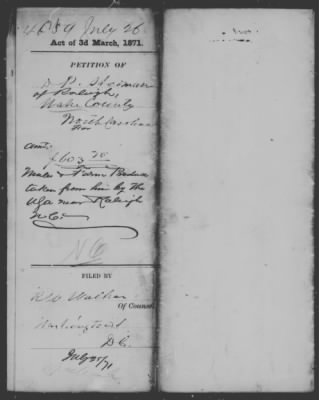 July 26
Act of 3d March, 1871.
PETITION OF
of Raleigh,
Wake County
North Carolina
for
amt.
$603
Mules & Farm Produce
taken from him by the
USA near Raleigh
N.C.
N C
FILED BY
Of Counsel
Washington
D.C.
July 25/71